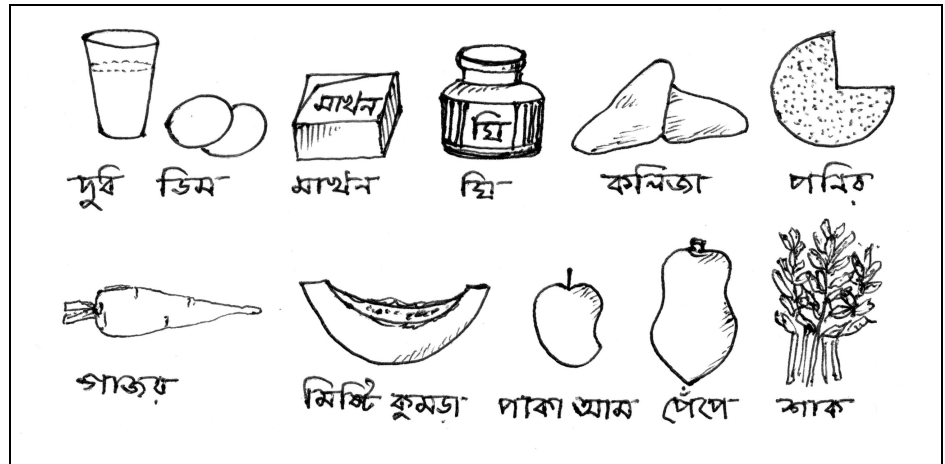 মাখন
ঘি
দুধ ডিম মাখন ঘি কলিজা পনির
গাজর মিষ্টি কুমড়া পাকা আম পেঁপে শাক